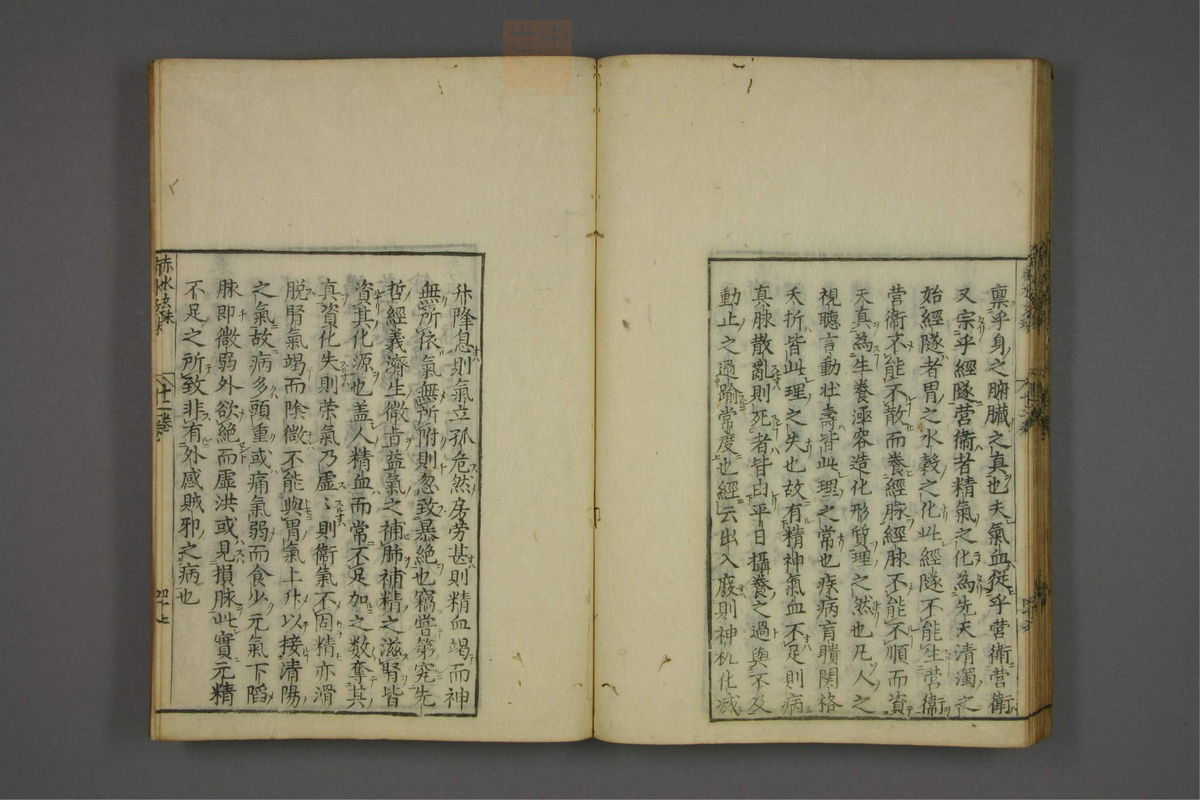 稟乎身之腑臟之真也夫氣血從乎營衛營衛
又宗乎經隧營衛者精氣之化為先天清濁之
始經隧者胃之水穀之化此經隧不能生營衛
營衛不能不散而養經脉經脉不能不順而資
天真為生養溼容造化形質理之然也凡人之
視聽言動壮壽皆此理之常也疾病盲聵関格
夭折皆此理之失也故有精神氣血不足則病
真脉散亂則死者皆由平日攝養之過與不及
動止之過踰常度也經云出入廢則神机化滅
升降息則氣立孤危然房劳甚則精血竭而神
無所依氣無所附則忽致暴絶也竊嘗第究先
哲經義濟生微㫖益氣之補肺補精之滋腎皆
資其化源也盖人精血而常不足加之数奪其
真資化失則荣氣乃虚〻則衛氣不固精亦滑
脱腎氣竭而陰微不能與胃氣上升以接清陽
之氣故病多頭重或痛氣弱而食少元氣下䧟
脉即微弱外欲絶而虚洪或見損脉此實元精
不足之所致非有外感賊邪之病也
赤水玄珠
十二卷
四十七